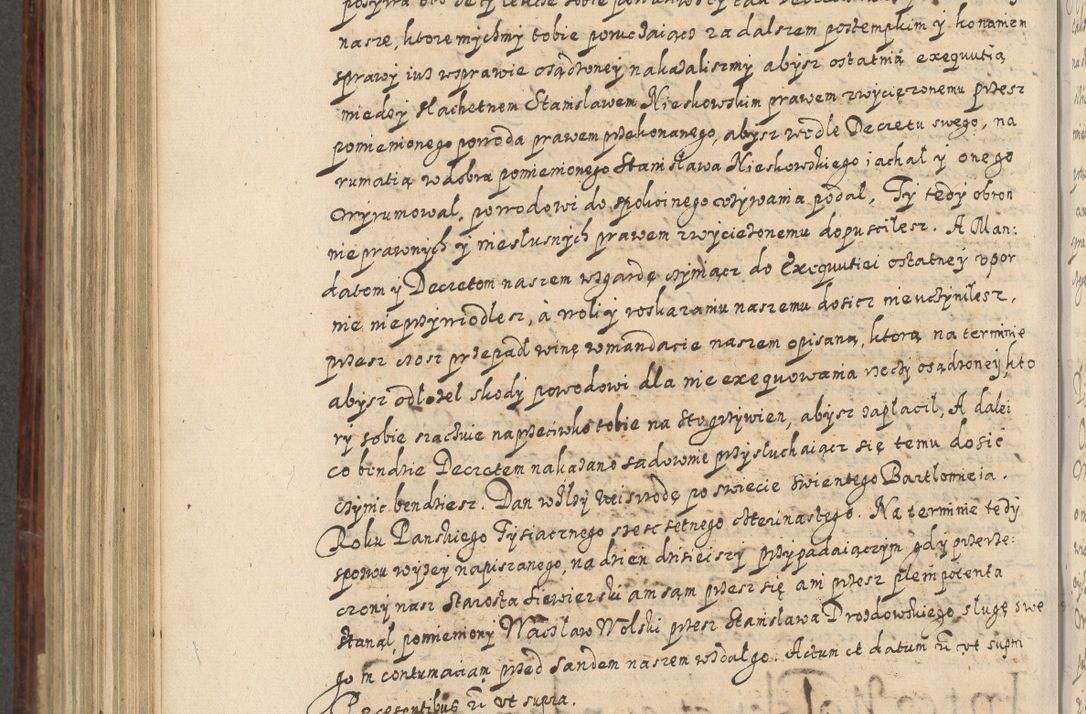 nasze, ktore mychmy tobie poruczaiącz za dalszem postempkim y konaniem
sprawy iuż w sprawie osądzoney nakazaliszmy abysz ostatnią exequutią
miedzy szlachetnem Stanisławem Nieskowskim prawem zwyciezonemu przesz
pomienionego powoda prawem przekonanego, abysz wedle Decretu swego, na
rumatią w dobra pomienionego Stanisława Nieskowskiego iachał y onego
wyrumował, powodowi do spokoinego używania podał, Ty tedy obron
nieprawnych y niesłusznych prawem zwyciezonemu dopusciłesz. A Man:
datom y Decretom naszem wzgardę czyniącz do Exequutiei ostatney upor
nie nieprzywiodłesz, á woli y roskazaniu naszemu dosicz nieuczyniłesz,
przesz czosz przepadł winę w mandacie naszem opisaną, ktorą na terminie
abysz odłożeł skody powodowi dla nie exequowania rzeczy osądzoney, kto
ry sobie szacuie naprzeciwko tobie na sto grzywien, abysz zapłacił, A dalei
co bendzie Decretem nakazano sadownie przysłuchaiącz się temu dosić
czynić bendziesz. Dan w po swiecie swientego Bartłomieia.
Roku Panskiego Tysiącznego szesc setnego czterinastego. Na terminie tedy
sposou wyzey napiszanego, na dzien dzisieiszy przypadaiączym gdy przerze:
czony nasz Starosta Siewierski ani sam przesz się ani przesz plenipotenta
stanął, pomieniony Wacław Wolski przesz Stanisława Drozdowskiego sługę swe
go in contumaciam przed sandem naszem wzdał go. Actum et datum ut supra
Praesentibus ut supra.